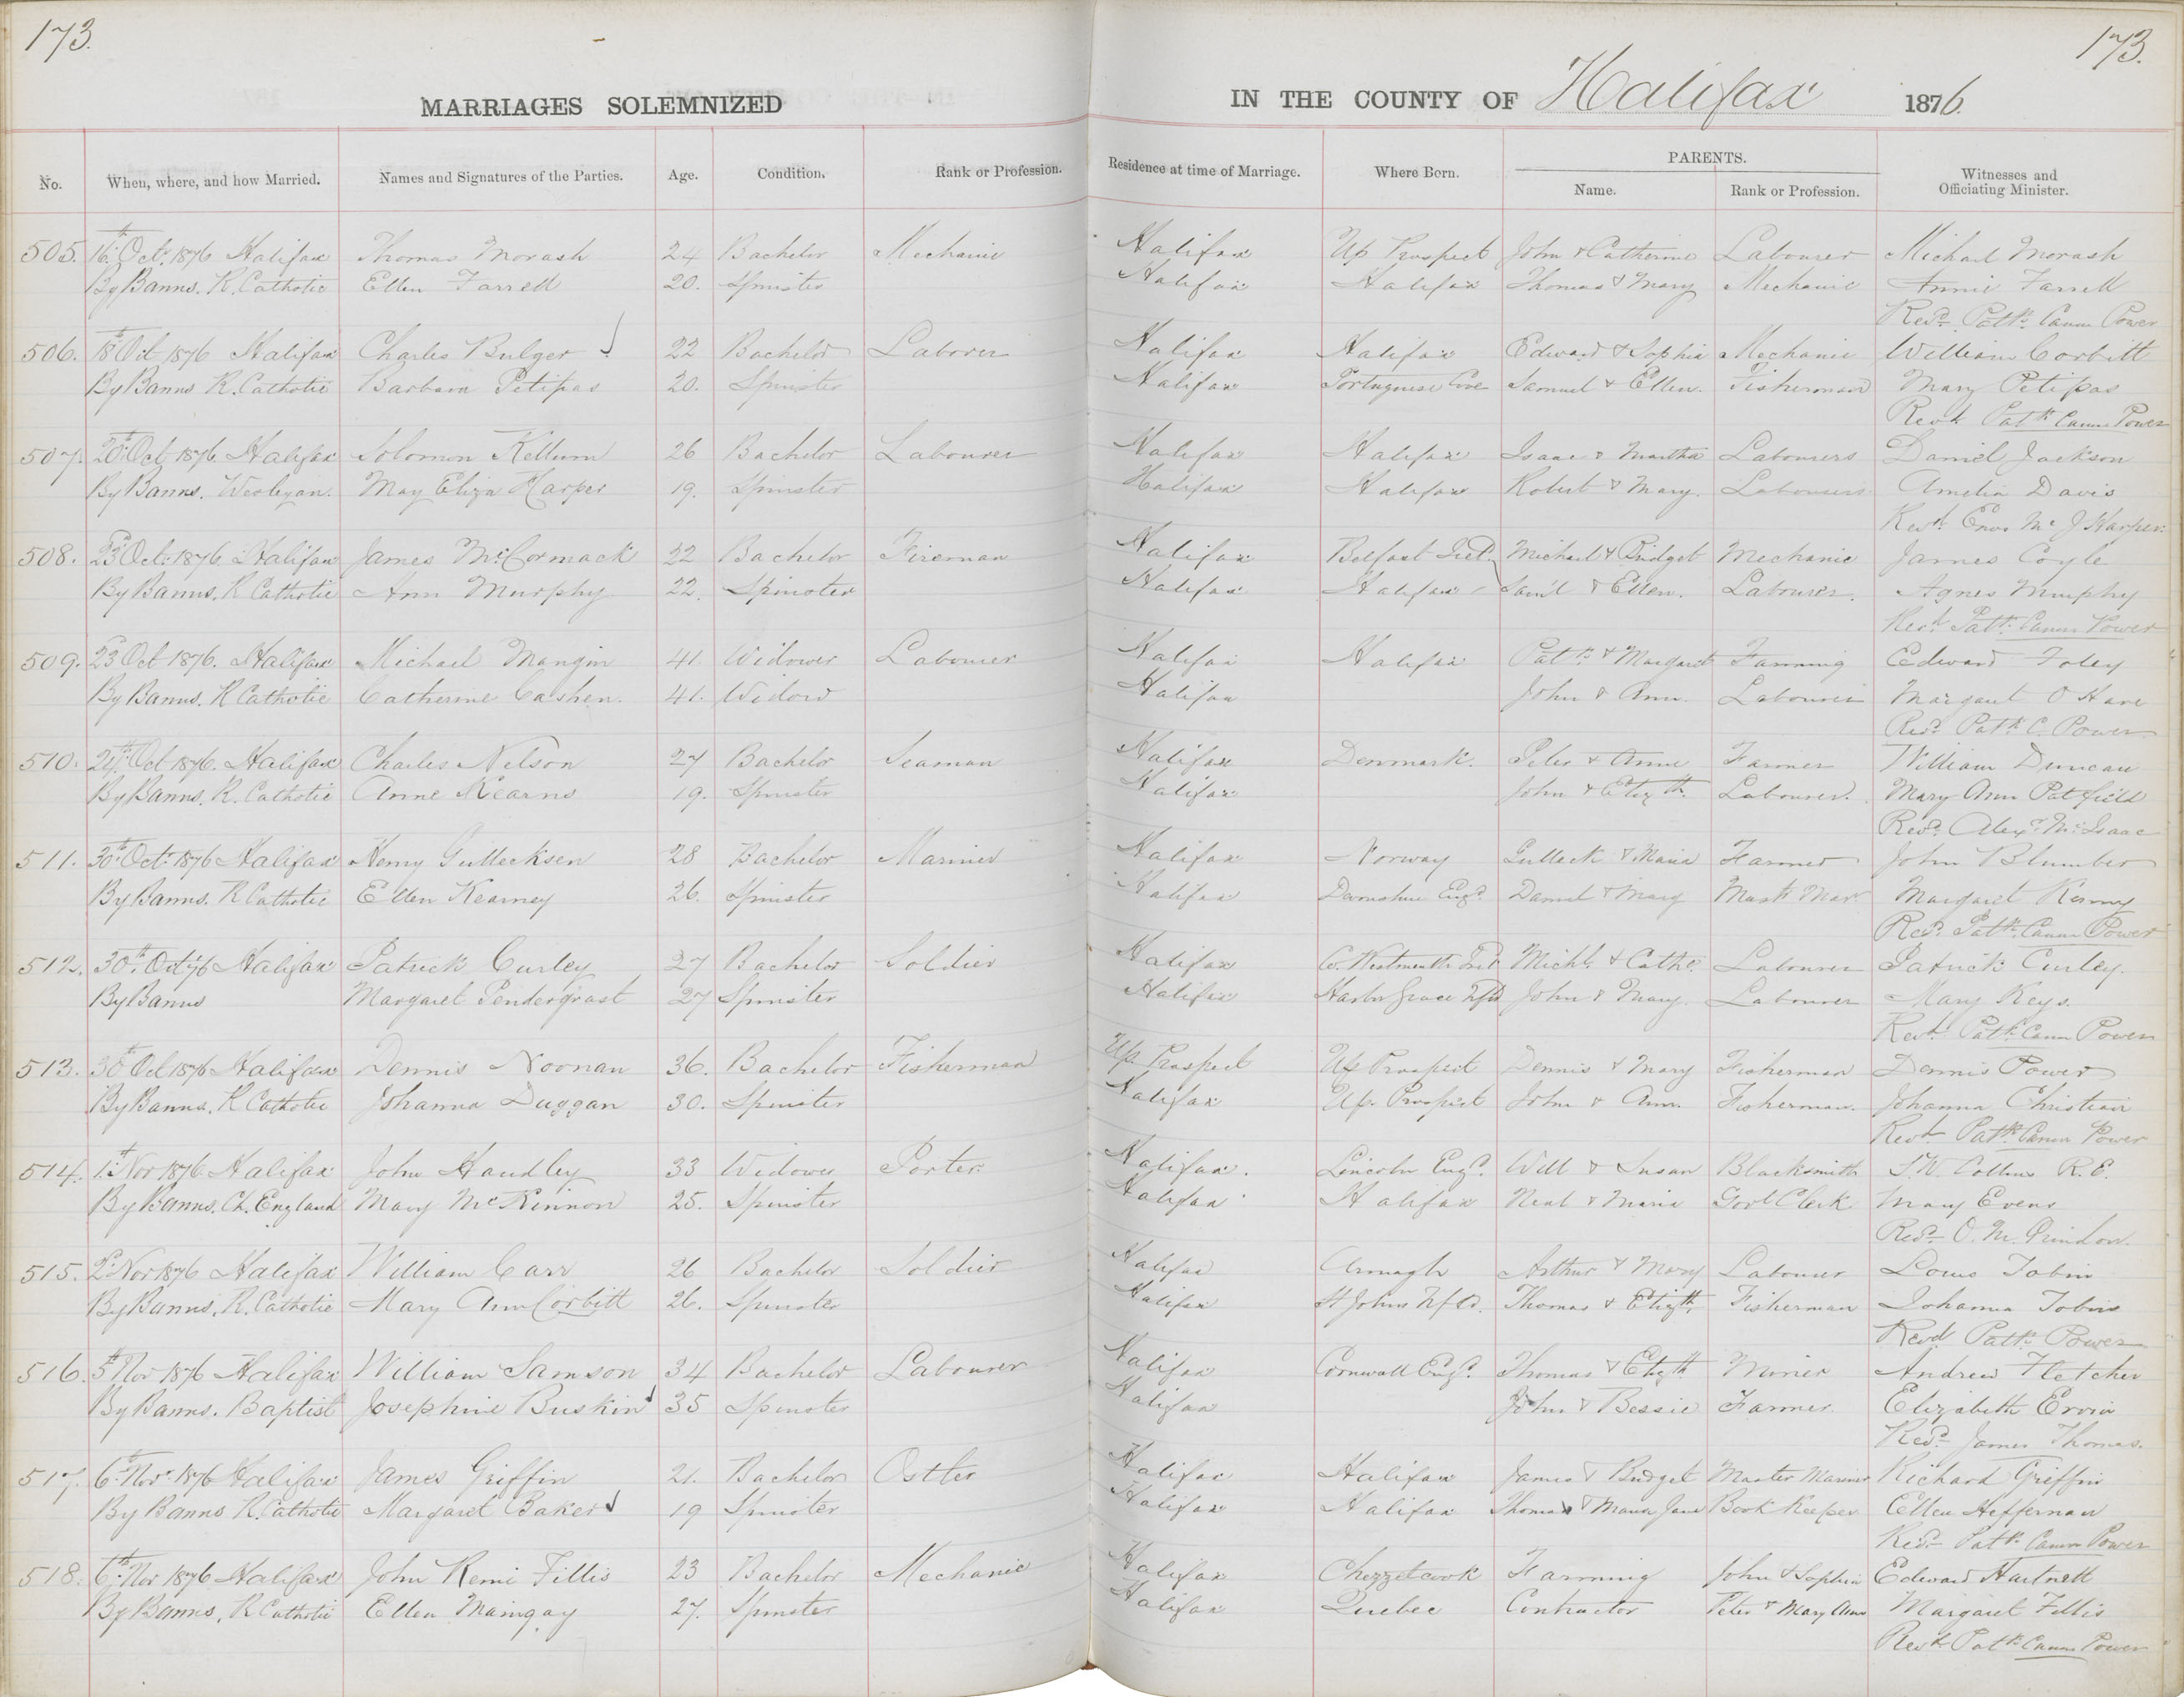 173.
173.
MARRIAGES SOLEMNIZED
IN THE COUNTY OF Halifax 1876.
No. When, where, and how Married. Names and Signatures of the Parties. Age. Condition. Rank or Profession. Residence at time of Marriage. Where Born. PARENTS. Name. Rank or Profession. Witnesses and Officiating Minister.
505. 16th Oct. 1876 Halifax Thomas Morash 24 Bachelor Mechanic Halifax Up Prospect John & Catherine Labourer Michael Morash
By Banns. R. Catholic Ellen Farrell 20. Spinster Halifax Halifax Thomas & Mary Mechanic Annie Farrell
Revd. Patk. Canon Power
506. 18th Oct 1876 Halifax Charles Bulger 22 Bachelor Laborer Halifax Halifax Edward & Sophia Mechanic William Corbitt
By Banns R. Catholic Barbara Petipas 20. Spinster Halifax Portuguese Cove Samuel & Ellen. Fisherman Mary Petipas
Revd. Patk Canon Power
507. 20th Oct 1876. Halifax Solomon Kellum 26 Bachelor Labourer Halifax Halifax Isaac & Martha Labourers Daniel Jackson
By Banns. Wesleyan. May Eliza Harper 19. Spinster Halifax Halifax Robert & Mary. Labourers Amelia Davis
Revd. J Harper.
508. 23d Oct. 1876. Halifax James McCormack 22 Bachelor Fireman Halifax Belfast Ireld. Michael & Bridget Mechanic James Coyle
By Banns. R Catholic Ann Murphy 22. Spinster Halifax Halifax Sam'l & Ellen. Labourer. Agnes Murphy
Revd. Patk. Canon Power
509. 23d Oct 1876. Halifax Michael Mangin 41. Widower Labourer Halifax Halifax Patk. & Margaret Farming Edward Foley
By Banns. R Catholic Catherine Cashen. 41. Widow Halifax John & Ann. Labourer Margaret O Hare
Revd. Patk C. Power
510. 24th Oct 1876. Halifax Charles Nelson 27 Bachelor Seaman Halifax Denmark. Peter & Anne Farmer William Duncan
By Banns. R. Catholic Anne Kearns 19. Spinster Halifax John & Elizth. Labourer. Mary Ann Patfield
Revd. Alexr. McIsaac
511. 30th Oct. 1876 Halifax Henry Gullecksen 28 Bachelor Mariner Halifax Norway Gulleck & Maria Farmer John Blumber
By Banns. R Catholic Ellen Kearney 26. Spinster Halifax Devonshire Engd. Daniel & Mary Mastr Mar. Margaret
Revd. Patk. Canon Power
512. 30th. Oct '76 Halifax Patrick Curley 27 Bachelor Soldier Halifax Co. Westmeath Irel Michl. & Cathe. Labourer Patrick Curley.
By Banns Margaret Pendergrast 27 Spinster Halifax Harbr Grace Nfld John & Mary. Labourer Mary Keys.
Revd. Patk. Canon Power
513. 30th Oct 1876 Halifax Dennis Noonan 36. Bachelor Fisherman Up. Prospect Up Prospect Dennis & Mary Fisherman Dennis Power
By Banns. R Catholic Johanna Duggan 30. Spinster Halifax Up. Prospect John & Ann. Fisherman. Johanna Christian
Revd. Patk Canon Power
514. 1st Nov 1876 Halifax John Handley 33 Widower Porter Halifax. Lincoln Engd. Will & Susan Blacksmith T.W. Collins R.E.
By Banns. Ch. England Mary McKinnon 25. Spinster Halifax Halifax Neal & Maria Govt Clerk Mary Evens
Revd. O. M. Grindon.
515. 2d Nov 1876 Halifax William Carr 26 Bachelor Soldier Halifax Armagh Arthur & Mary Labourer Louis Tobin
By Banns. R. Catholic Mary Ann Corbitt 26. Spinster Halifax St Johns Nfld. Thomas & Elizth. Fisherman Johanna Tobin
Revd. Patk. Power
516. 5th Nov 1876 Halifax William Samson 34 Bachelor Labourer Halifax Cornwall Engd. Thomas & Elizth Miner Andrew Fletcher
By Banns. Baptist Josephine Buskin 35 Spinster Halifax John & Bessie Farmer. Elizabeth Ervin
Revd. James Thomas.
517. 6th Novr. 1876 Halifax James Griffin 21. Bachelor Ostler Halifax Halifax James & Bridget Master Mariner Richard Griffin
By Banns R. Catholic Margaret Baker 19 Spinster Halifax Halifax Thomas & Maria Jane Book Keeper Ellen Heffernan
Revd. Patk. Canon Power
518. 6th Nov 1876 Halifax John Remi Fillis 23 Bachelor Mechanic Halifax Chezzetcook Farming John & Sophia Edward Hartnett
By Banns, R Catholic Ellen Maingay 27. Spinster Halifax Quebec Contractor Peter & Mary Ann Margaret Fillis
Revd Patk Canon Power